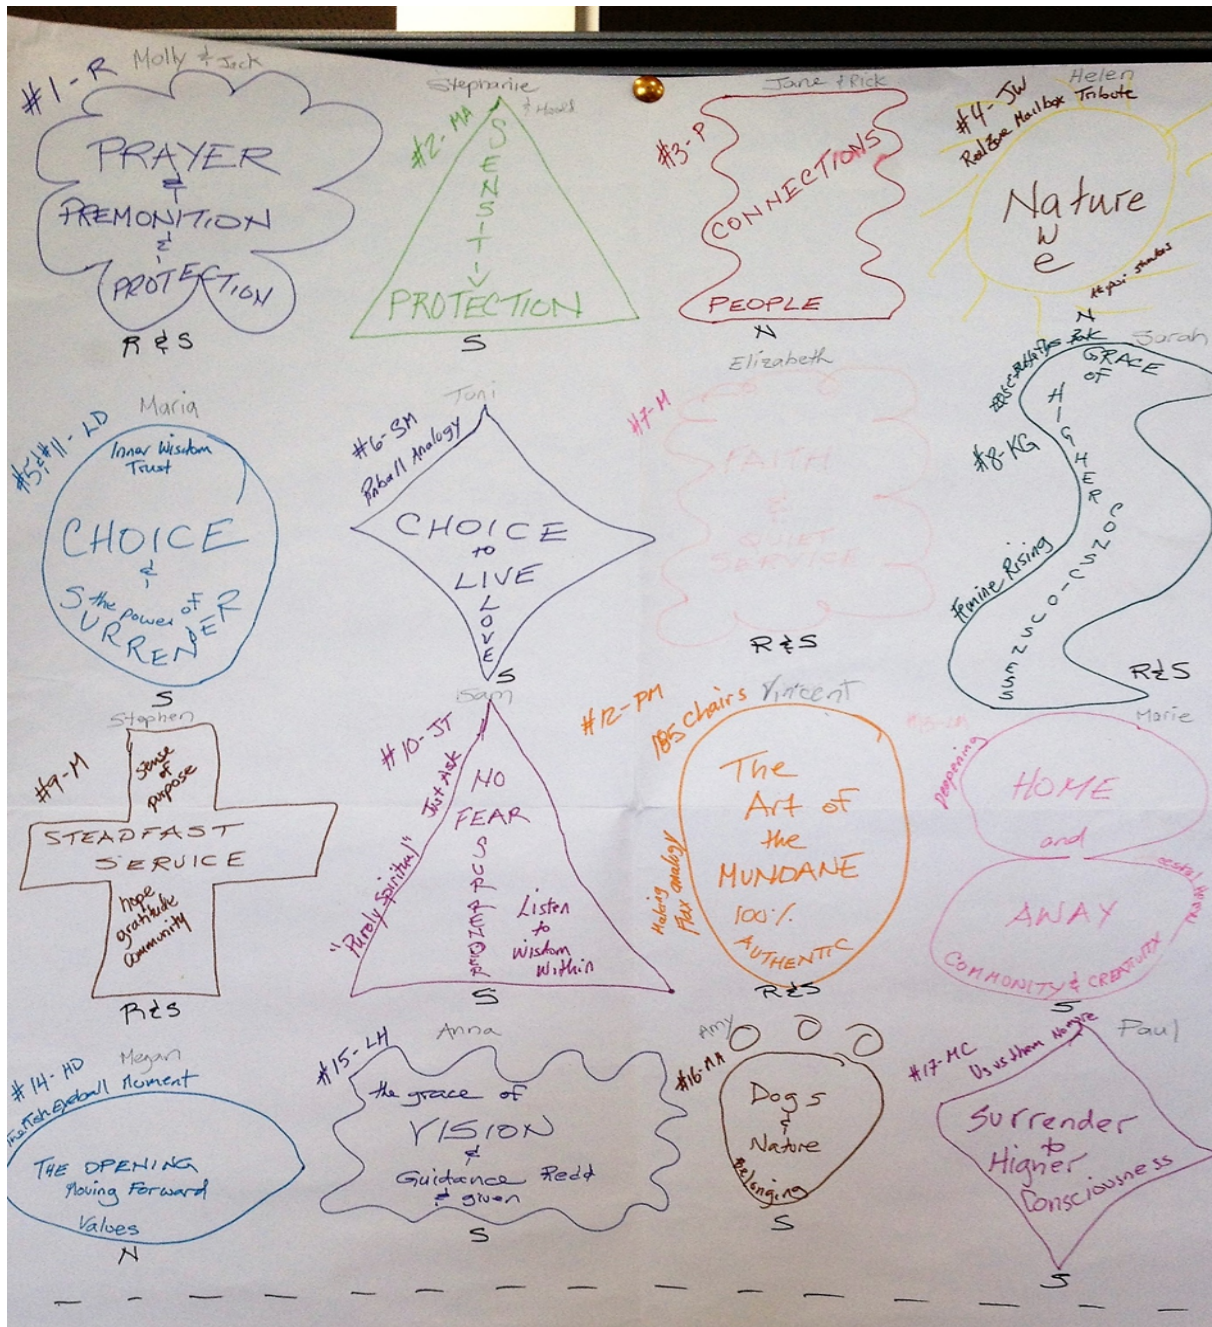 Molly & Jack
#1-R
PRAYER
&
PREMONITION
&
PROTECTION
R & S
Stephanie
& Harold
#2-MA
SENSITIV
PROTECTION
S
Jane & Rick
#3-P
CONNECTIONS
PEOPLE
N
Helen
#4-JW
Red Zone Mailbox Tribute
Nature
we
N
Maria
#5&#11-LD
Inner Wisdom
Trust
CHOICE
&
the power of
SURRENDER
S
Toni
#6-SM
Pinball Analogy
CHOICE
to
LIVE
LOVE
S
Elizabeth
#7-M
FAITH
&
QUIET
SERVICE
R & S
Sarah
#8-KG
GRACE
OF
HIGHER
CONSCIOUSNESS
Femine Rising
R & S
Stephen
#9-M
sense
of
purpose
STEADFAST
SERVICE
hope
gratitude
community
R & S
Sam
#10-JT
Just Ask
"Purely Spiritual"
NO
FEAR
Listen
to
wisdom
within
S
#12-PM
Vincent
185 Chairs
Making
Flax analogy
The
Art of
the
MUNDANE
100%
AUTHENTIC
R & S
Marie
Deepening
HOME
and
AWAY
COMMUNITY & CREATIVITY
S
Megan
#14-HD
Eyeball Moment
THE OPENING
Moving Forward
Values
N
Anna
#15-LH
the grace of
VISION
&
Guidance Recd
& given
S
Amy
#16-MA
Dogs
&
Nature
Belonging
S
Paul
#17-MC
Us vs them No more
Surrender
to
Higher
Consciousness
S